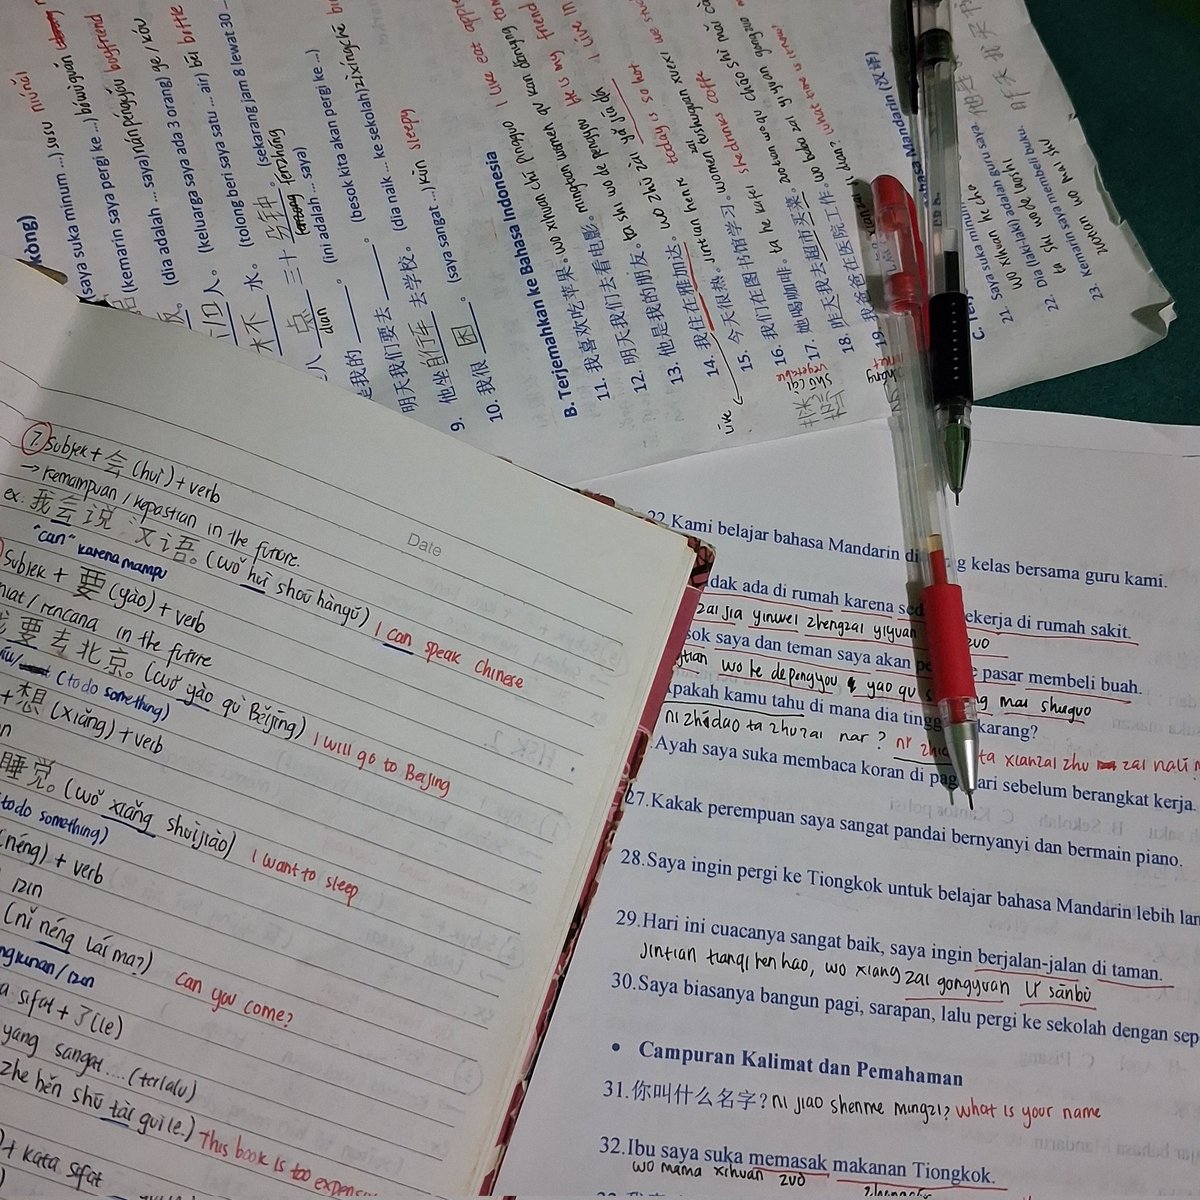 kòng)
(saya suka minum ...) susu niúnǎi
(kemarin saya pergi ke ...) bówùguǎn
(dia adalah ... saya) nánpéngyǒu boyfriend
人。 (keluarga saya ada 3 orang) ge / kǒu
水。 (tolong beri saya satu ... air) bēi
点 三十 分钟 。 (sekarang jam 8 lewat 30
dian fēnzhōng
是我的 。 (ini adalah ... saya)
明天我们要去 。 (besok kita akan pergi ke ...)
9. 他坐 自行车 去学校。 (dia naik ... ke sekolah) zìxíngchē
10. 我很 困 。 (saya sangat ...) kùn sleepy
B. Terjemahkan ke Bahasa Indonesia
11. 我喜欢吃苹果。 wo xihuan chi pingguo I like eat
12. 明天我们去看电影。 mingtian women qu kan dianying
13. 他是我的朋友。 ta shi wo de pengyou He is my friend
14. 我住在雅加达。 wo zhù zài yǎ jiā dá I live in
live
15. 今天很热。 jintian hen re today is so hot
16. 我们在图书馆学习。 women zai tushuguan xuexi we
17. 她喝咖啡。 ta he kafei she drinks coffe
18. 昨天我去超市买菜。 zuotian wo qu chāo shì mǎi cài
vegetable
19. 我爸爸在医院工作。 wo baba zai yi yuan gongzuo
what time is it now
21. Saya suka minum
wo xihuan he cha
22. Dia laki-laki adalah guru saya
ta shi wo de laoshi
23. Kemarin saya membeli buku.
zuotian wo mai shu
昨天 我 买 书
Date
7 Subjek + 会 (huì) + verb
→ Kemampuan / kepastian in the future.
ex: 我会说汉语。 (wǒ huì shuō hànyǔ) I can speak Chinese
"can" karena mampu
Subjek + 要 (yào) + verb
niat / rencana in the future
我要去北京。 (wǒ yào qù Běijīng) I will go to Beijing
(to do something)
+ 想 (xiǎng) + verb
睡觉。 (wǒ xiǎng shuìjiào) I want to sleep
to do something)
(néng) + verb
izin
(nǐ néng lái ma?) can you come?
izin
sifat + 了 (le)
yang sangat .... (terlalu)
zhe běn shū tài guì le.) This book is too
+ kata sifat
22. Kami belajar bahasa Mandarin di kelas bersama guru kami.
dak ada di rumah karena sed ekerja di rumah sakit.
zai jia yinwei zhengzai yiyuan zuo
sok saya dan teman saya akan pe pasar membeli buah.
tian wo he de pengyou yao qu mai shuiguo
pakah kamu tahu di mana dia tingg karang?
ni zhidao ta zhu zai nar ? ni ta xianzai zhu zai nali
Ayah saya suka membaca koran di pag ari sebelum berangkat kerja.
27. Kakak perempuan saya sangat pandai bernyanyi dan bermain piano.
28. Saya ingin pergi ke Tiongkok untuk belajar bahasa Mandarin lebih lan
29. Hari ini cuacanya sangat baik, saya ingin berjalan-jalan di taman.
jintian tianqi hen hao, wo xiang zai gongyuan sànbù
30. Saya biasanya bangun pagi, sarapan, lalu pergi ke sekolah dengan sep
• Campuran Kalimat dan Pemahaman
31. 你叫什么名字? ni jiao shenme mingzi? what is your name
32. Ibu saya suka memasak makanan Tiongkok.
wo mama xihuan zuo